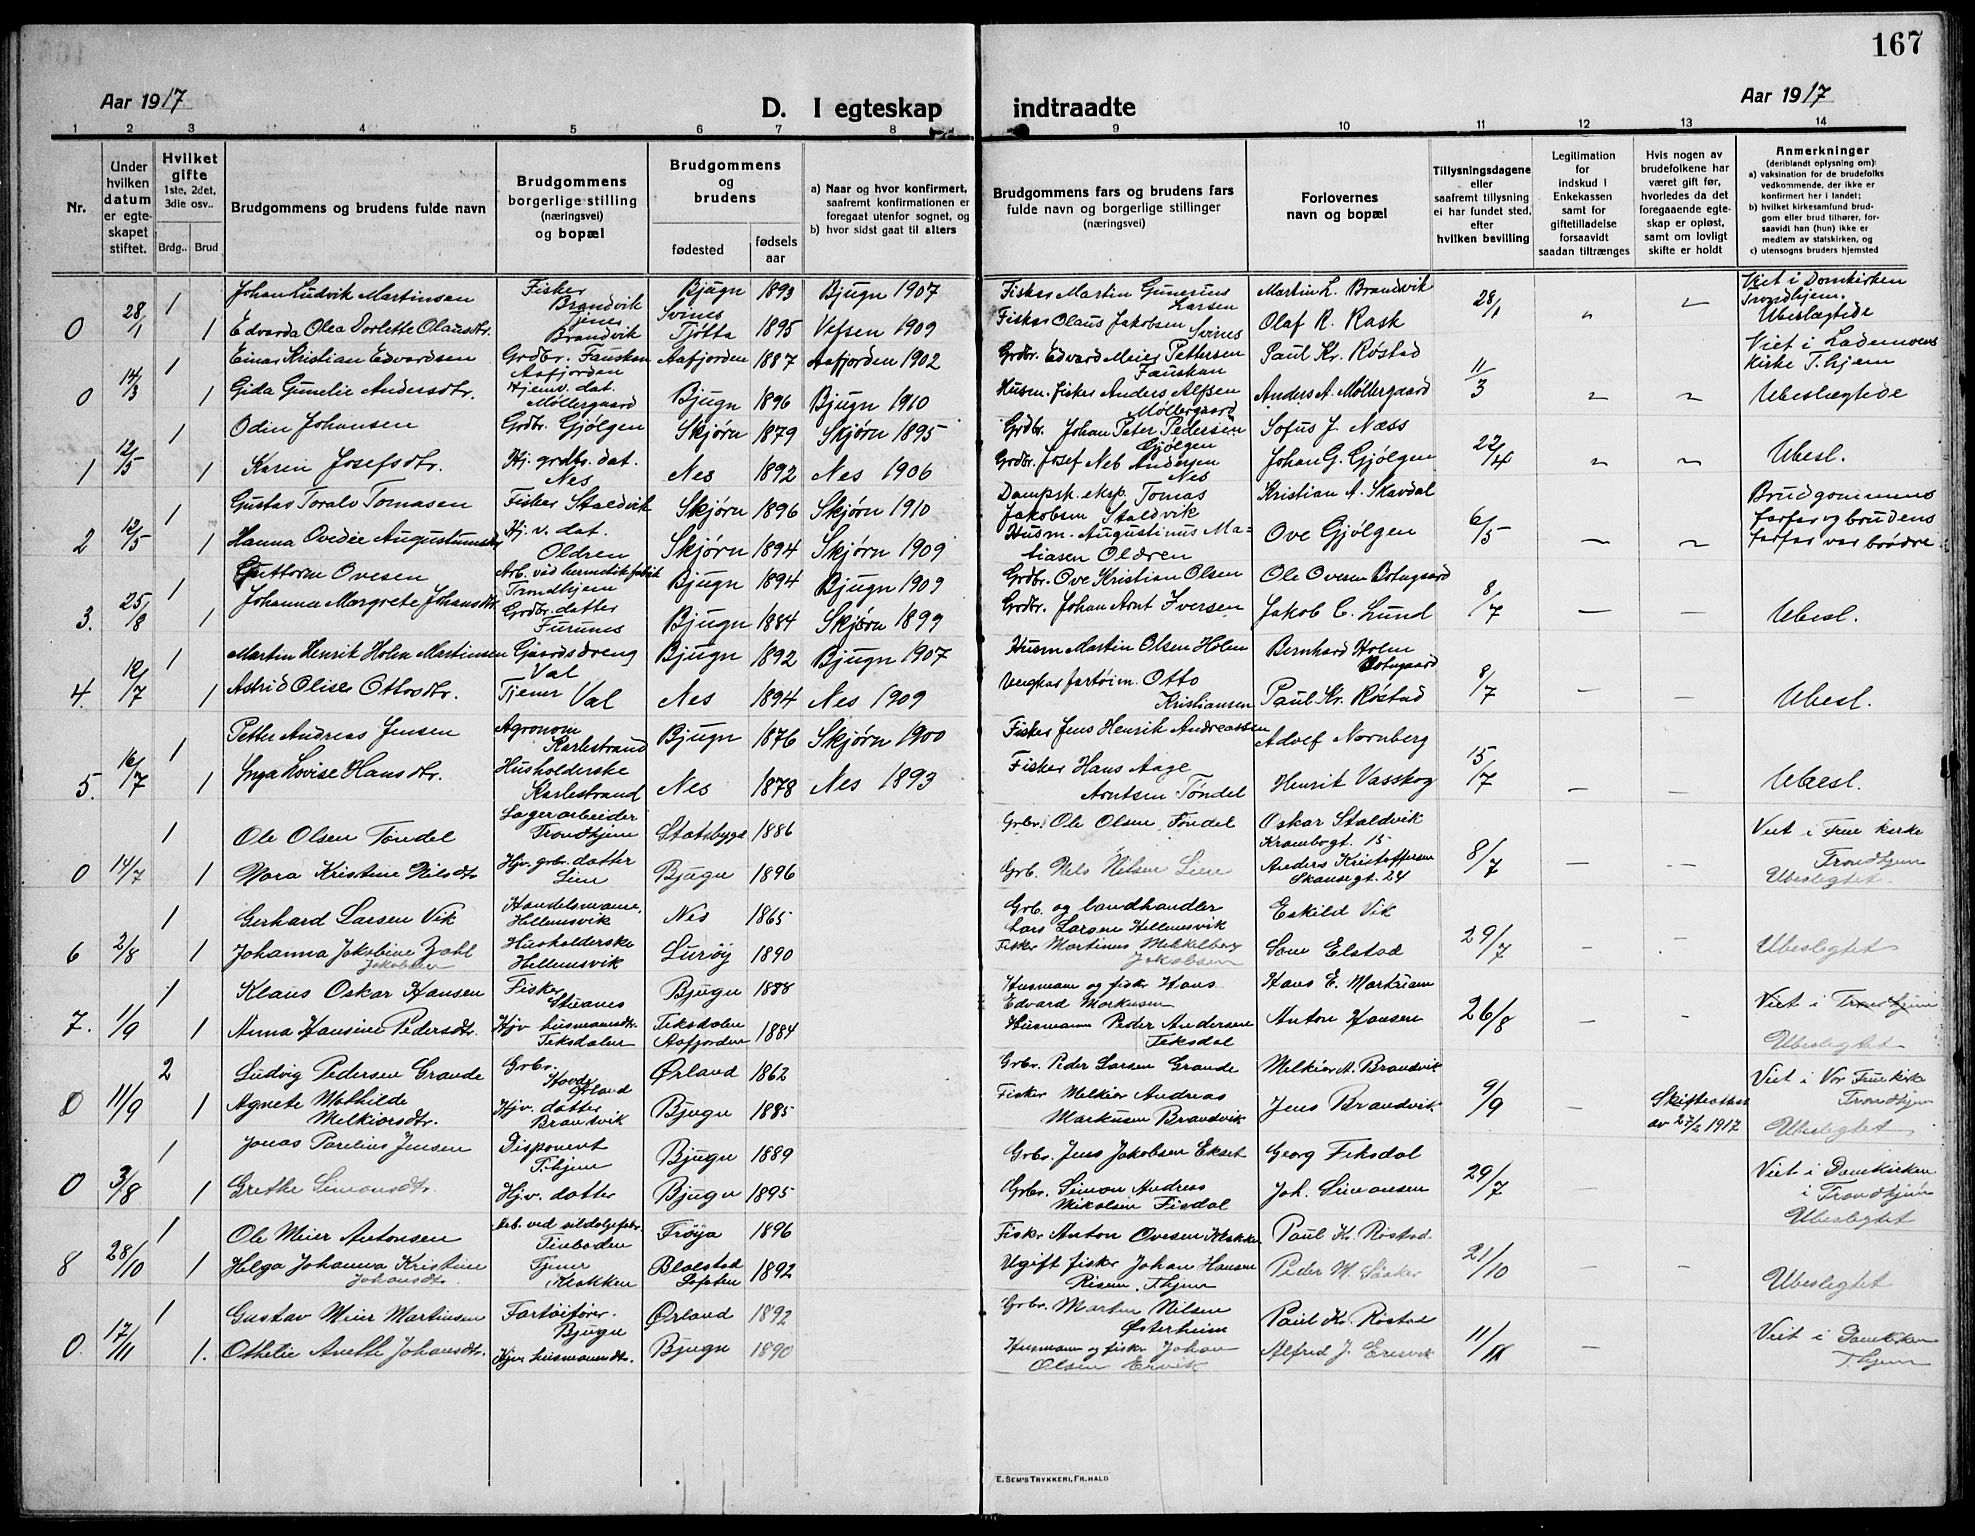 167
Aar 1917
D. I egteskap indtraadte
Aar 1917
1 2 3 4 5 6 7 8 9 10 11 12 13 14
Nr.
Under hvilken datum er egteskapet stiftet.
Hvilket gifte 1ste, 2det, 3die osv..
Brdg.. Brud
Brudgommens og brudens fulde navn
Brudgommens borgerlige stilling (næringsvei) og bopæl
Brudgommens og brudens
fødested
fødsels aar
a) Naar og hvor konfirmert, saafremt konfirmationen er foregaat utenfor sognet, og
b) hvor sidst gaat til alters
Brudgommens fars og brudens fars fulde navn og borgerlige stillinger (næringsvei)
Forlovernes navn og bopæl
Tillysningsdagene eller saafremt tillysning ei har fundet sted, efter hvilken bevilling
Legitimation for indskud i Enkekassen samt for giftetilladelse forsaavidt saadan tiltrænges
Hvis nogen av brudefolkene har været gift før, hvorledes da det foregaaende egteskap er opløst, samt om lovligt skifte er holdt
Anmerkninger (deriblandt oplysning om):
a) vaksination for de brudefolks vedkommende, der ikke er konfirmert her i landet;
b) hvilket kirkesamfund brudgom eller brud tilhører, forsaavidt han (hun) ikke er medlem av statskirken, og
c) utensogns bruders hjemsted
Johan Ludvik Martinsen Fisker Brandvik Bjugn 1893 Bjugn 1907 Fisker Martin Gunerius Larsen Martin L. Brandvik Viet i Domkirken Trondhjem.
0 28/1 1 1 Edvarda Olea Dorlette Olausdtr. Brandvik Svines Tjøtta 1895 Vefsen 1909 Fisker Olaus Jakobsen Svines Olaf R. Rask 28/1 " " Ubeslægtede
Einar Kristian Edvardsen Grdbr. Fauskan Aafjorden Aafjorden 1887 Aafjorden 1902 Grdbr. Edvard Meier Pettersen Fauskan Paul Kr. Røstad Viet i Lademoens Kirke T.hjem
0 14/3 1 1 Gida Gunelie Andersdtr. Hjemv. dat. Møllergaard Bjugn 1896 Bjugn 1910 Husm. fisker Anders Alfsen Møllergaard Anders A. Møllergaard 11/3 " " Ubeslægtede
Odin Johansen Grdbr. Gjølgen Skjørn 1879 Skjørn 1895 Grdbr. Johan Peter Pedersen Gjølgen Sofus J. Næss
1 12/5 1 1 Karen Josefsdtr. Hj. grdbr. dat. Nes Nes 1892 Nes 1906 Grdbr. Josef Neb Andersen Nes Johan G. Gjølgen 22/4 " " Ubesl.
Gustav Toralv Tomasen Fisker Staldvik Skjørn 1896 Skjørn 1910 Dampsk. eksp. Tomas Jakobsen Staldvik Kristian A. Skavdal Brudgommens
2 12/5 1 1 Hanna Ovedie Augustinusdtr Hj. v. dat. Oldren Skjørn 1894 Skjørn 1909 Husm. Augustinus Matiasen Oldren Ove Gjølgen 6/5 - " farfar og brudens farfar var brødre
Guttorm Ovesen Arb. ved hermetikfabrik Trondhjem Bjugn 1894 Bjugn 1909 Grdbr. Ove Kristian Olsen Ole Ovesen Botngaard
3. 25/8 1 1 Johanna Margrete Johansdtr Grdbr. datter Furunes Bjugn 1884 Skjørn 1899 Grdbr. Johan Arnt Iversen Jakob C. Lund 8/7 - - Ubesl.
Martin Henrik Holm Martinsen Gaardsdreng Val Bjugn 1892 Bjugn 1907 Husm Martin Olsen Holm Bernhard Holm Botngaard
4. 12/7 1 1 Astrid Olise Ottosdtr. Tjener Val Nes 1894 Nes 1909 Otto Kristiansen Paul Kr. Røstad 8/7 - - Ubesl.
Petter Andreas Jensen Agronom Karlestrand Bjugn 1876 Skjørn 1900 Fisker Jens Henrik Andreassen Adolf Nornberg
5. 16/7 1 1 Inga Lovise Hansdtr. Husholderske Karlestrand Nes 1878 Nes 1893 Fisker Hans Aage Arntsen Tøndel Henrik Vasskog 15/7 - - Ubesl.
Ole Olsen Tøndel Lagerarbeider Trondhjem Statsbygd 1886 Grbr. Ole Olsen Tøndel Oskar Staldvik Krambogt. 15 Viet i Frue kirke Trondhjem
0 14/7 1 1 Nora Kristine Nilsdtr Hjv. grbr. datter Lien Bjugn 1896 Grb. Nils Nilsen Lien Anders Kristoffersen Skansegt. 24 8/7 - - Ubeslegtet
Gerhard Larsen Vik Handelsmann, Hellemsvik Nes 1865 Grb. og landhandler Lars Larsen Hellemsvik Eskild Vik
6 2/8 1 1 Johanna Jakobine Zahl Jakobsen Husholderske Hellemsvik Lurøy 1890 Fisker Martinus Mekkelborg Jakobsen Som Elstad 29/7 - - Ubeslegtet
Klaus Oskar Hansen Fisker Bjugn 1888 Husmann og fisker Hans Edvard Markusen Hans E. Markusen Viet i Trondhjem
7. 1/9 1 1 Anna Hansine Pedersdtr. Hjv husmannsdtr. Teksdalen Teksdalen Aafjorden 1884 Husmann Peder Andersen Teksdal Anton Hansen 26/8 - - Ubeslegtet
Ludvig Pedersen Grande Grbr. Hovde Ørland Ørland 1862 Grbr. Peder Larsen Grande Melkior A. Brandvik Viet i Vor Frue kirke Trondhjem
0 11/9 2 1 Agnete Mathilde Melkiorsdtr. Hjv. datter Brandvik Bjugn 1885 Fisker Melkior Andreas Markusen Brandvik Jens Brandvik. 9/9 - Skifteattest av 27/2 1917 Ubeslegtet
Jonas Parelius Jensen Disponent T.hjem Bjugn 1889 Grbr. Jens Jakobsen Ekset Georg Teksdal Viet i Domkirken i Trondhjem
0 3/8 1 1 Grethe Simonsdtr. Hjv. datter Bjugn 1895 Grbr. Simon Andreas Mikalsen Joh. Simonsen 29/7 - - Ubeslegtet
Ole Meier Antonsen Arb. ved sildoljefabr. Frøya 1896 Fisker Anton Ovesen Klakken Paul Kr. Røstad.
8 28/10 1 1 Helga Johanna Kristine Johansdtr. Tjener Klakken Lofoten 1892 Ugift fisker Johan Hansen Risem, T.hjem Peder M. 21/10 - - Ubeslegtet
Gustav Meier Martinsen Fartøifører. Bjugn Ørland 1892 Grbr. Morten Nilsen Østerheim Paul Kr Røstad
0. 17/11 1 1. Othelie Anette Johansdtr. Hjv. husmannsdtr. Bjugn 1890 Husmann og fisker Johan Olsen Ervik Alfred J. Ervik 11/11 - Viet i Domkirken T.hjem
E. SEM'S TRYKKERI, FR.HALD